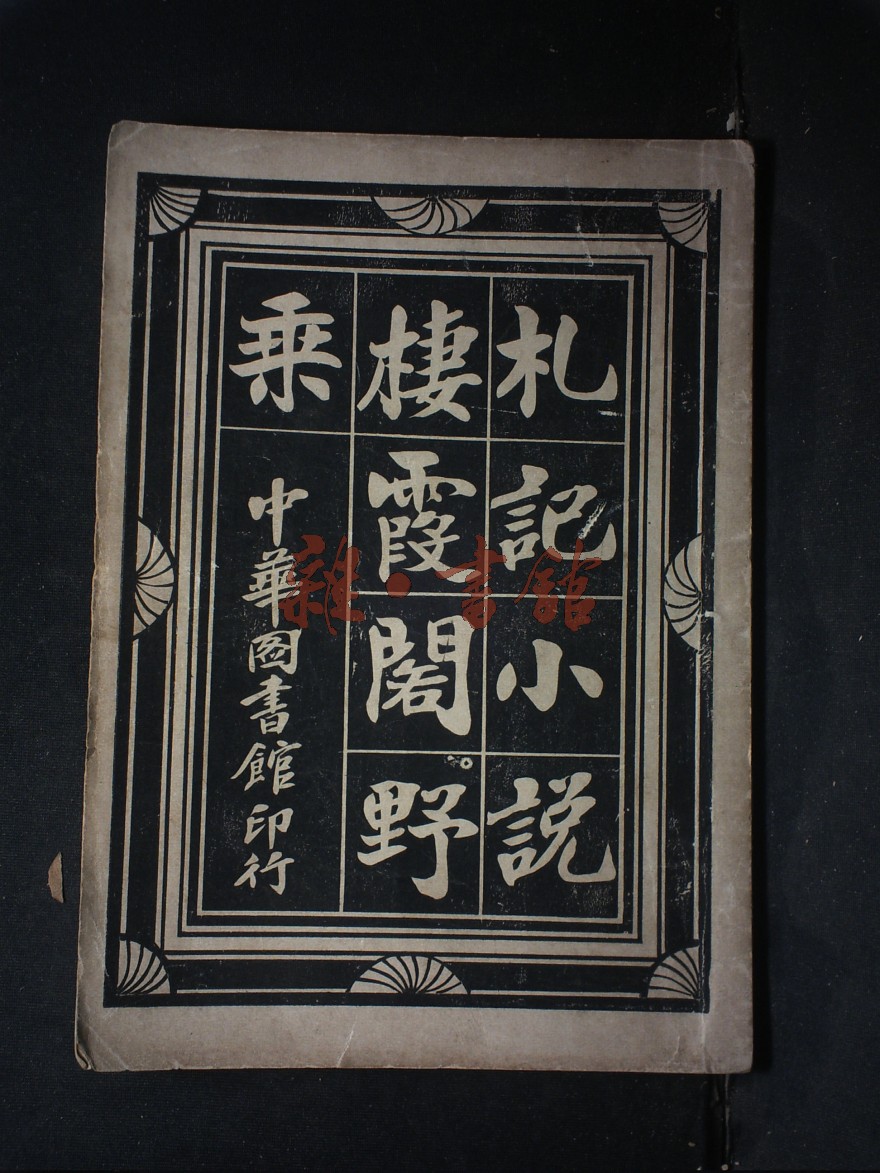 札記小說
棲霞閣野
乘
中華圖書館印行
雜·書館